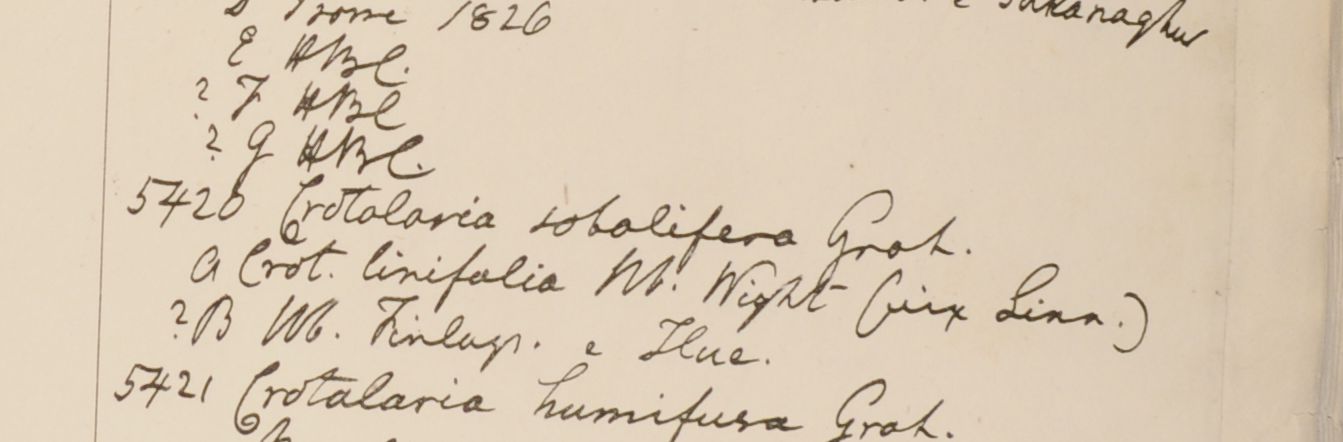 D Prome 1826
E HBC.
? F HBC
? G HBC.
5420 Crotalaria sobolifera Grah.
A Crot. linifolia Hb. Wight (vix Linn.)
? B Hb. Finlays. e Hue.
5421 Crotalaria humifusa Grah.